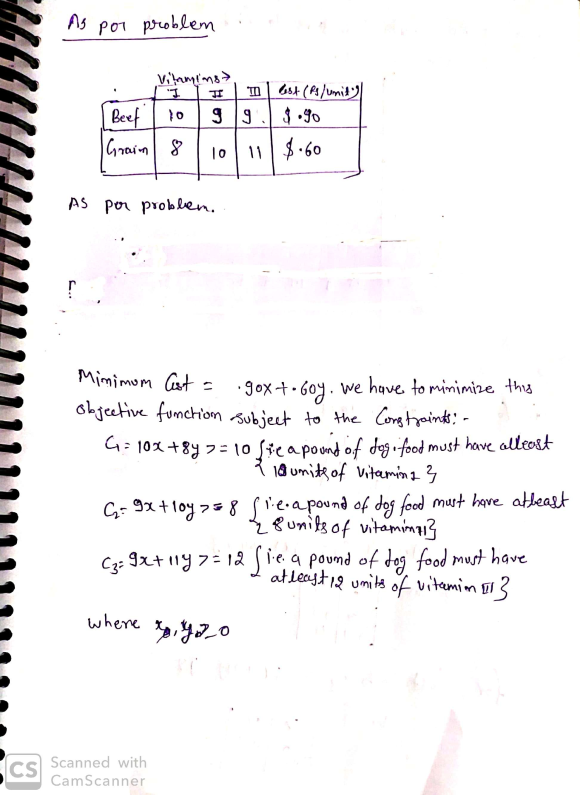 As per problem
Vitamins→
I II III Cost (Rs/units)
Beef 10 9 9. $.90
Grain 8 10 11 $.60
As per problem.
Minimum Cost = .90x+.60y. we have to minimize this
objective function subject to the Constraints:-
C1= 10x+8y >= 10 {i.e a pound of dog food must have atleast
10 units of Vitamin 1}
C2= 9x+10y >= 8 {i.e. a pound of dog food must have atleast
8 units of vitamin II}
C3= 9x+11y >= 12 {i.e. a pound of dog food must have
atleast 12 units of vitamin III}
where x, y ≥ 0
CS Scanned with
CamScanner